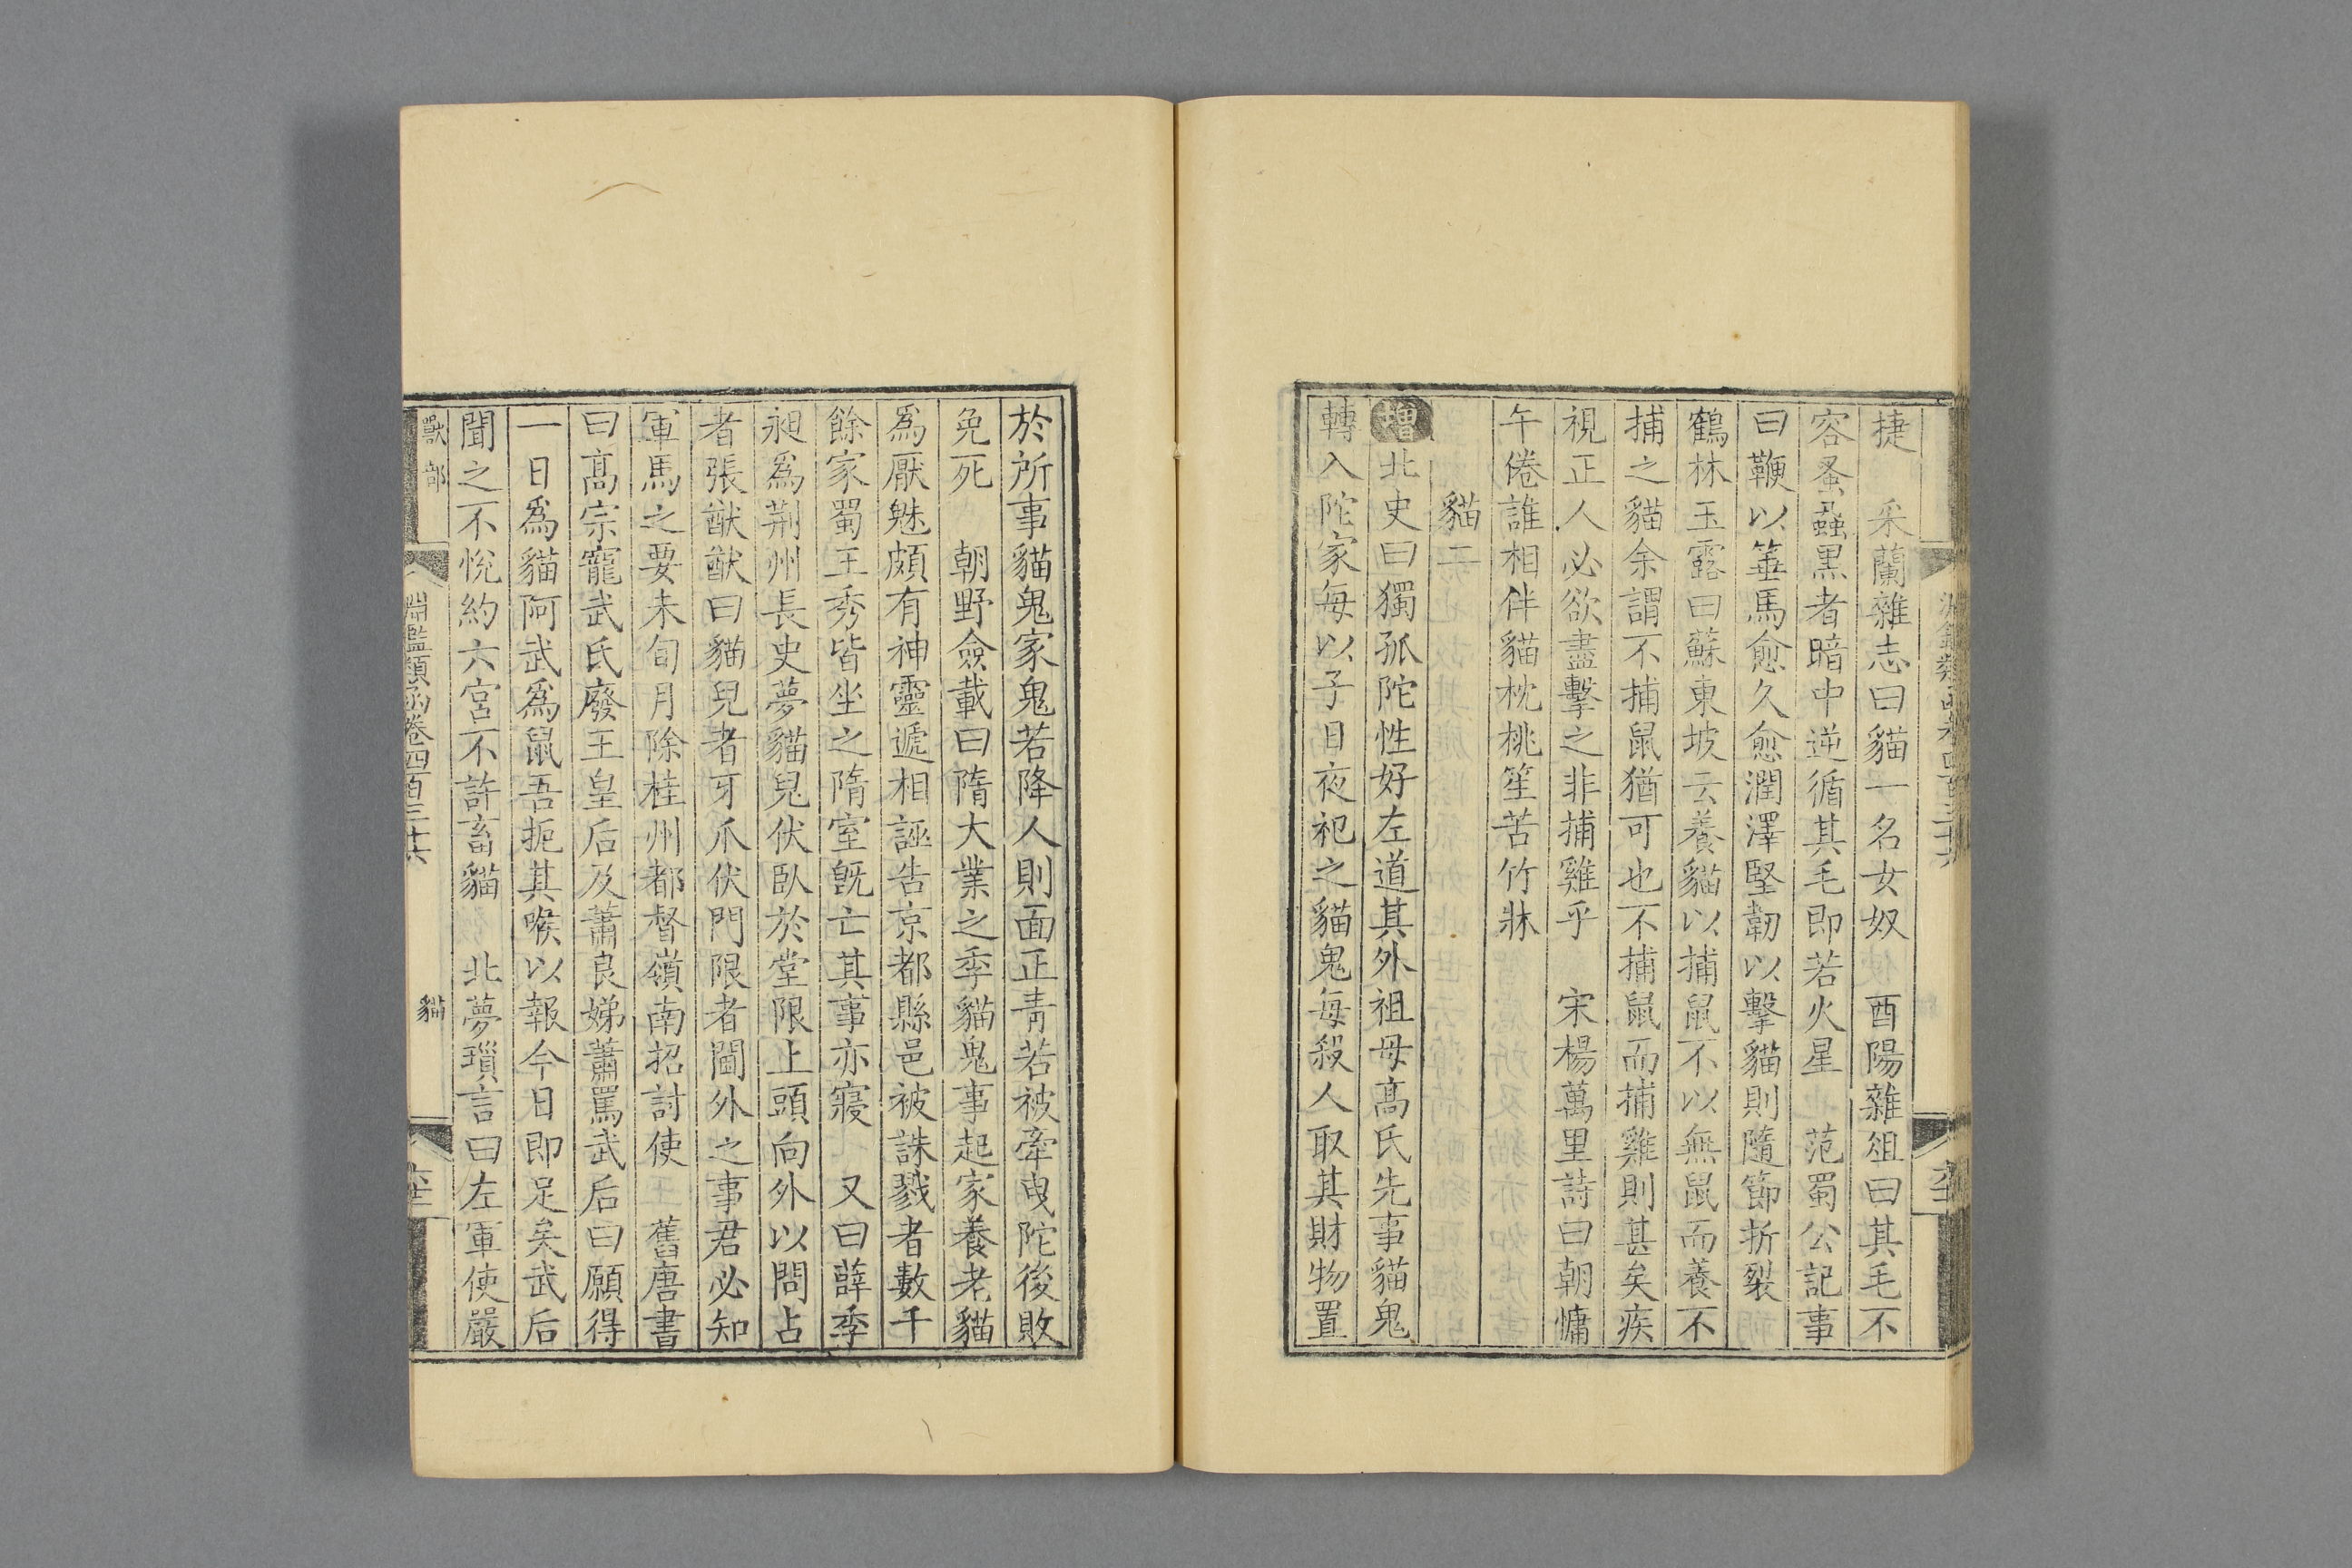 捷　采蘭雜志曰貓一名女奴　酉陽雜俎曰其毛不
容蚤蝨黑者暗中逆循其毛即若火星　范蜀公記事
曰鞭以箠馬愈久愈潤澤堅韌以擊貓則隨節折裂
鶴林玉露曰蘇東坡云養貓以捕鼠不以無鼠而養不
捕之貓余謂不捕鼠猶可也不捕鼠而捕雞則甚矣疾
視正人必欲盡擊之非捕雞乎　宋楊萬里詩曰朝慵
午倦誰相伴貓枕桃笙苦竹牀
貓二
增北史曰獨孤陀性好左道其外祖母高氏先事貓鬼
轉入陀家每以子日夜祀之貓鬼每殺人取其財物置
於所事貓鬼家鬼若降人則面正青若被牽曳陀後敗
免死　朝野僉載曰隋大業之季貓鬼事起家養老貓
爲厭魅頗有神靈遞相誣告京都縣邑被誅戮者數千
餘家蜀王秀皆坐之隋室旣亡其事亦寢　又曰薛季
昶爲荆州長史夢貓兒伏臥於堂限上頭向外以問占
者張猷猷曰貓兒者牙爪伏門限者閫外之事君必知
軍馬之要未旬月除桂州都督嶺南招討使　舊唐書
曰高宗寵武氏廢王皇后及蕭良娣蕭罵武后曰願得
一日爲貓阿武爲鼠吾扼其喉以報今日即足矣武后
聞之不悅約六宮不許畜貓　北夢瑣言曰左軍使嚴
獸部
淵鑑類函卷四百三十六
貓